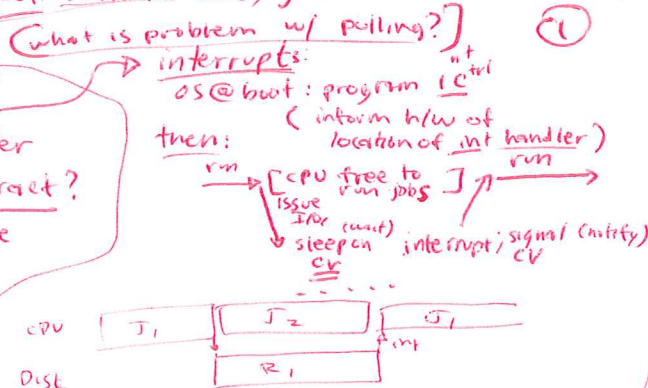 (what is problem w/ polling?]
①
interrupts:
OS@boot: program int ctrl
(inform h/w of
location of int handler)
er
ract?
e
then:
run
[CPU free to run jobs]
run
issue
I/O
(wait)
sleep on
CV
interrupt; signal (notify)
CV
CPU
J1
J2
J1
int
Disk
R1